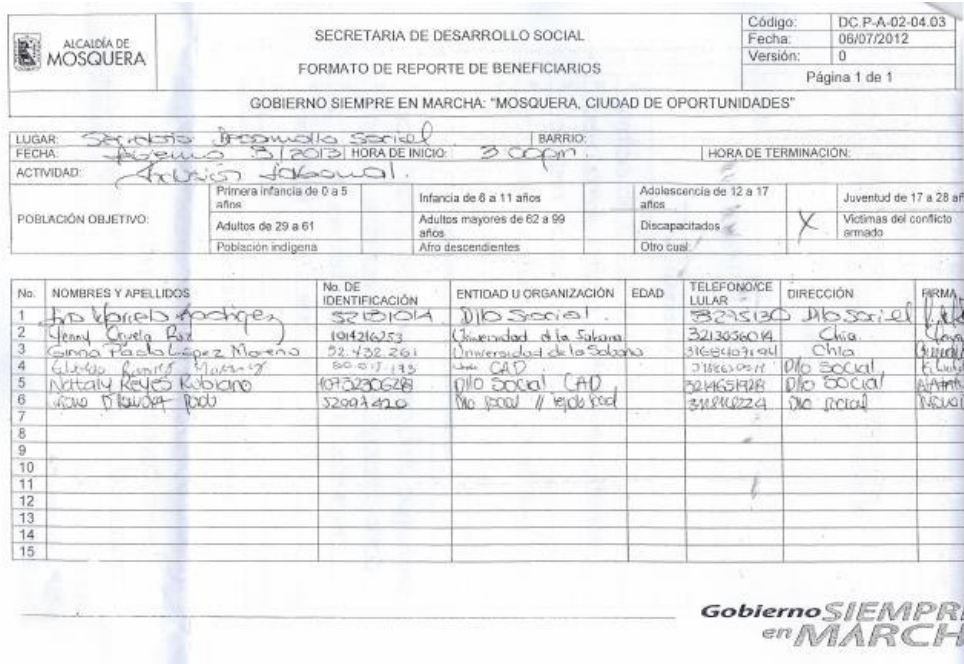 ALCALDÍA DE
MOSQUERA
SECRETARIA DE DESARROLLO SOCIAL
FORMATO DE REPORTE DE BENEFICIARIOS
Código: DC.P-A-02-04.03
Fecha: 06/07/2012
Versión: 0
Página 1 de 1
GOBIERNO SIEMPRE EN MARCHA: "MOSQUERA, CIUDAD DE OPORTUNIDADES"
LUGAR: Desarrollo Social BARRIO:
FECHA: 3/2013 HORA DE INICIO: 3 00pm. HORA DE TERMINACIÓN:
ACTIVIDAD: Inclusión Laboral.
POBLACIÓN OBJETIVO:
Primera infancia de 0 a 5 años Infancia de 6 a 11 años Adolescencia de 12 a 17 años Juventud de 17 a 28
Adultos de 29 a 61 Adultos mayores de 62 a 99 años Discapacitados X Victimas del conflicto armado
Población indígena Afro descendientes Otro cual:
No. NOMBRES Y APELLIDOS No. DE IDENTIFICACIÓN ENTIDAD U ORGANIZACIÓN EDAD TELEFONO/CE LULAR DIRECCIÓN FIRMA
1 Rodriguez Dllo Social Dllo Social
2 Jenny 1014216253 Universidad de la Sabana 3213656014 Chia
3 Ginna Paola López Moreno 52.432.261 Universidad de la Sabana Chia
4 CAD Dllo Social
5 Nataly Reyes Rubiano 1073230628 Dllo Social CAD 3214651928 Dllo Social
6 52997420 Dllo Social Dllo Social
7
8
9
10
11
12
13
14
15
Gobierno SIEMPRE
en MARCH